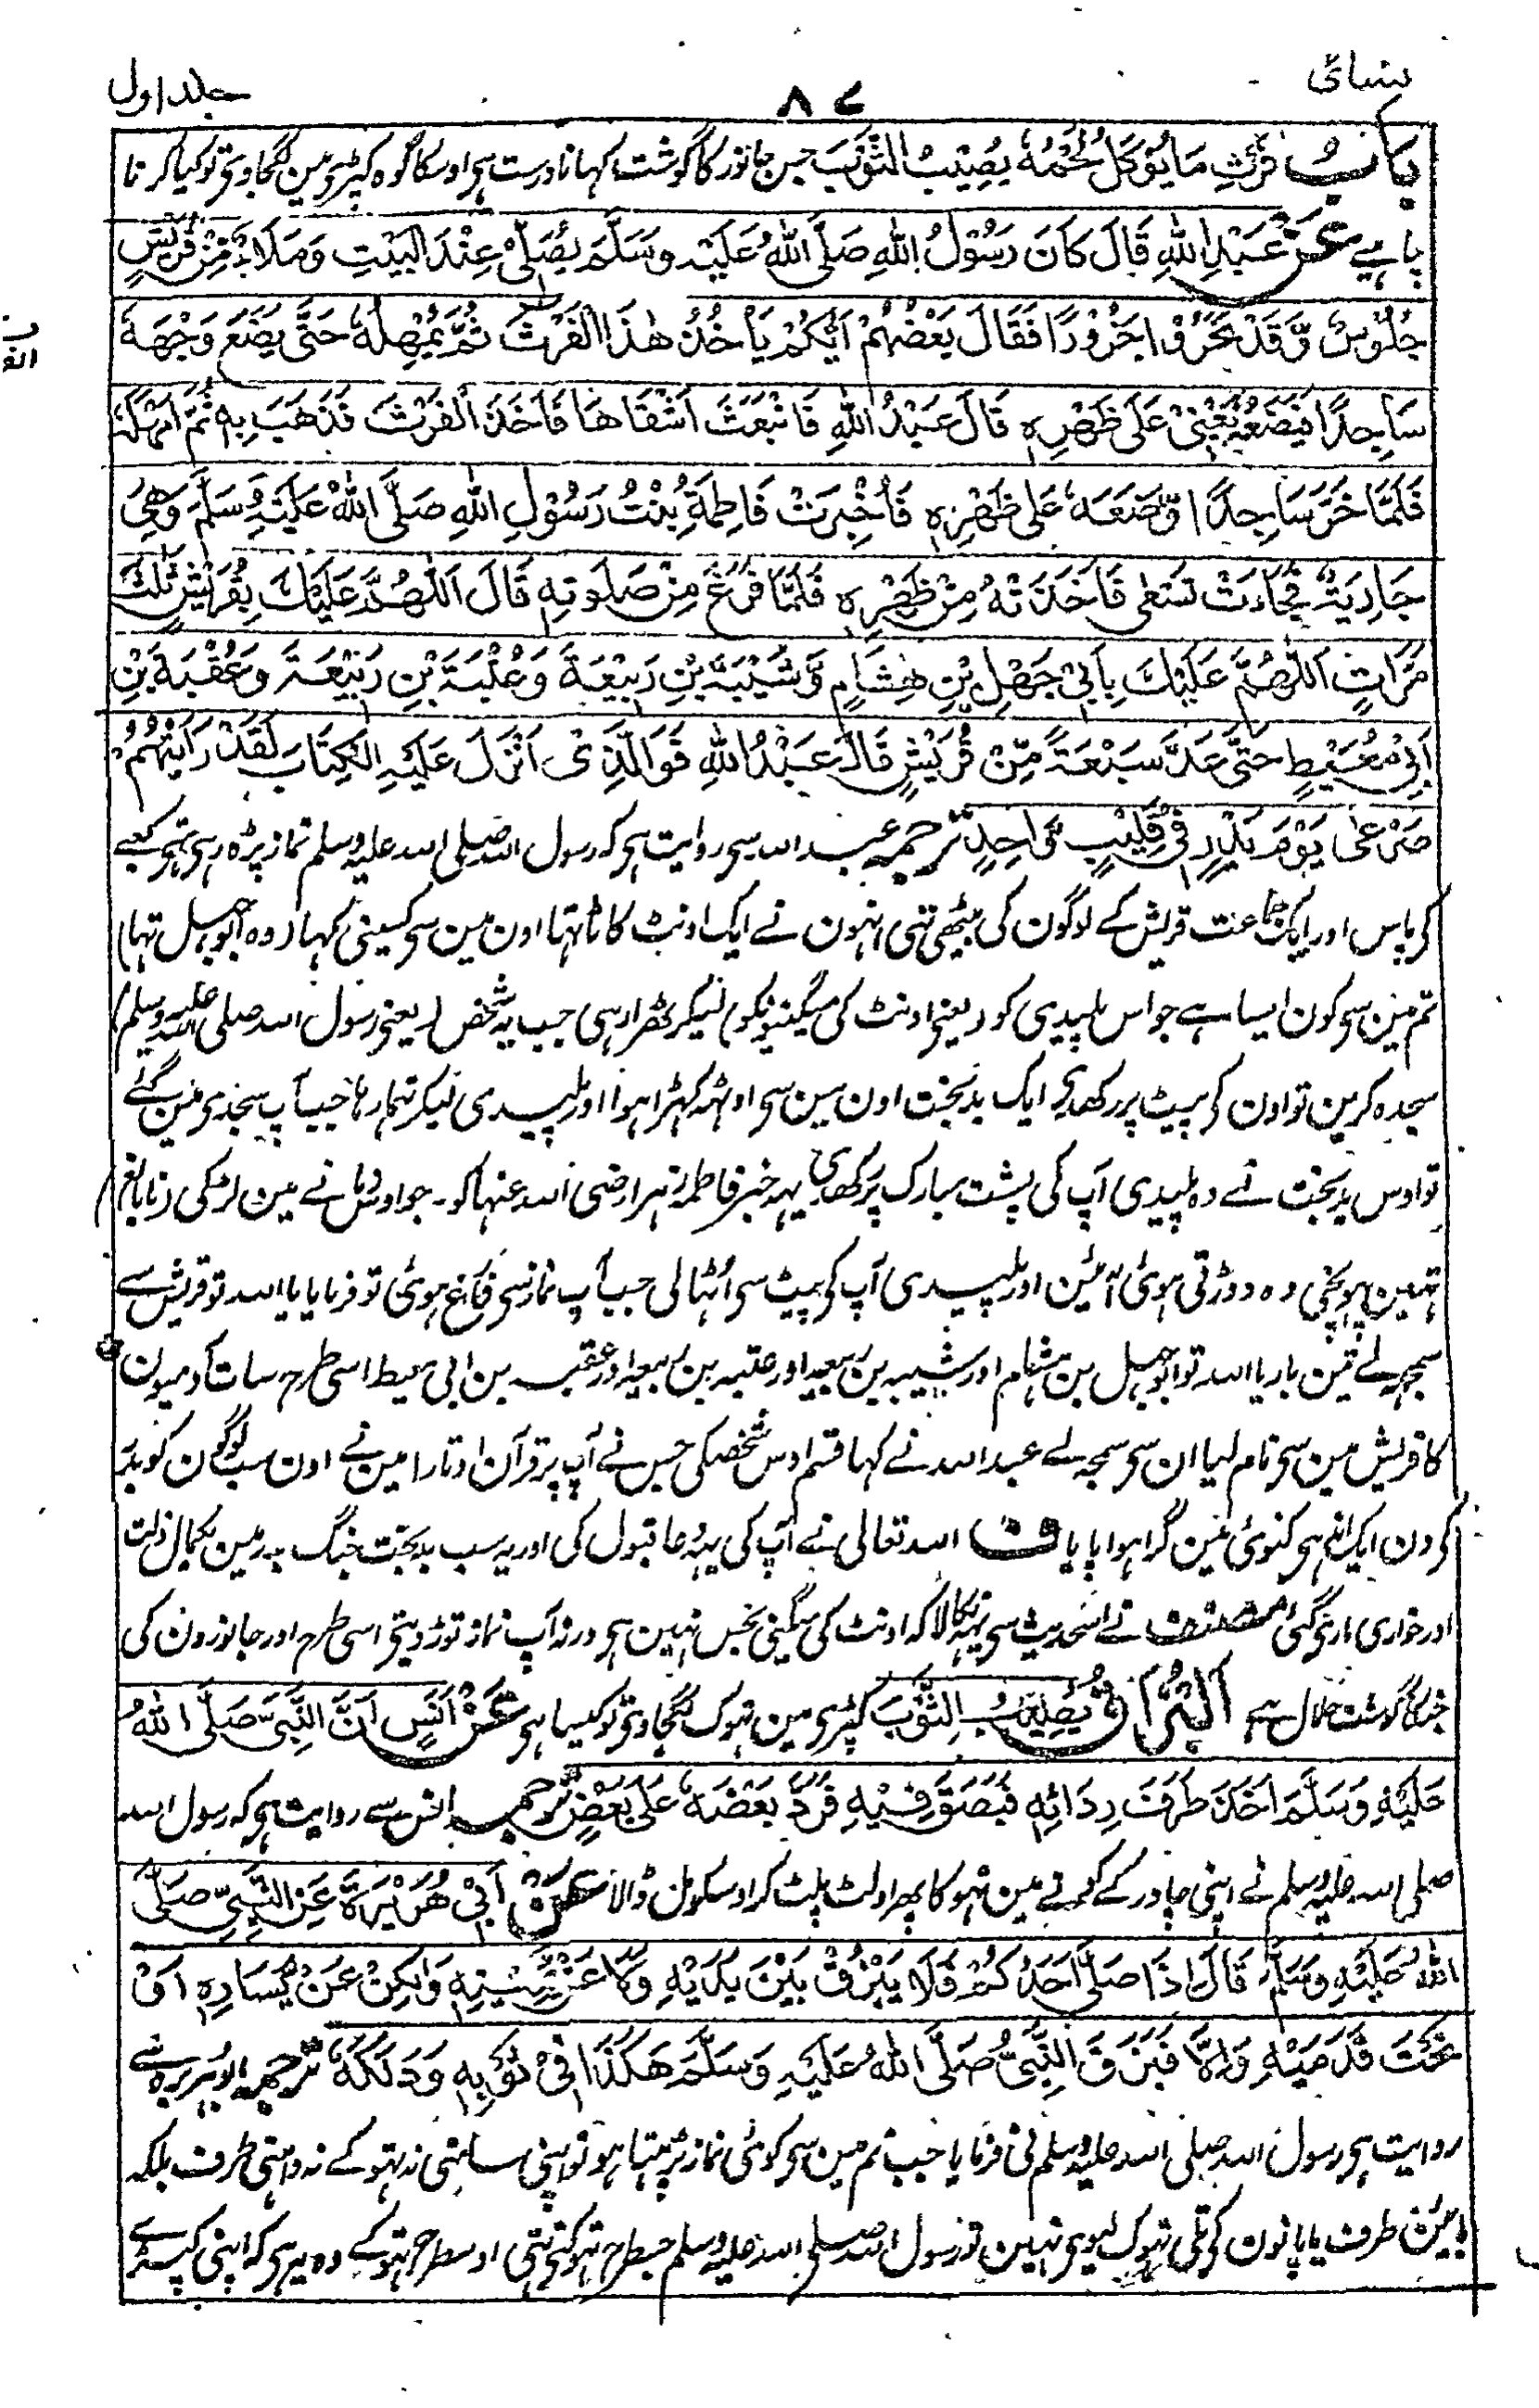 نسائی ۸۷ جلد اول
بَابُ فَرْثِ مَا يُؤْكَلُ لَحْمُهٗ يُصِيْبُ الثَّوْبَ جس جانور کا گوشت کہانا درست ہی اوسکا گوہ کپڑی مین لگجاوی تو کیا کرنا
چاہیے عَنْ عَبْدِ اللهِ قَالَ كَانَ رَسُوْلُ اللهِ صَلَّى اللهُ عَلَيْهِ وَسَلَّمَ يُصَلِّيْ عِنْدَ الْبَيْتِ وَمَلَاءٌ مِّنْ قُرَيْشٍ
جُلُوْسٌ وَّقَدْ نَحَرُوْا جَزُوْرًا فَقَالَ بَعْضُهُمْ اَيُّكُمْ يَأْخُذُ هٰذَا الْفَرْثَ ثُمَّ يُمْهِلُهٗ حَتّٰى يَضَعَ وَجْهَهٗ
سَاجِدًا فَيَضَعُهٗ يَعْنِيْ عَلٰى ظَهْرِهٖ قَالَ عَبْدُ اللهِ فَانْبَعَثَ اَشْقَاهَا فَاَخَذَ الْفَرْثَ فَذَهَبَ بِهٖ ثُمَّ اَمْهَلَهٗ
فَلَمَّا خَرَّ سَاجِدًا وَّضَعَهٗ عَلٰى ظَهْرِهٖ فَاُخْبِرَتْ فَاطِمَةُ بِنْتُ رَسُوْلِ اللهِ صَلَّى اللهُ عَلَيْهِ وَسَلَّمَ وَهِيَ
جَارِيَةٌ فَجَاءَتْ تَسْعٰى فَاَخَذَتْهُ مِنْ ظَهْرِهٖ فَلَمَّا فَرَغَ مِنْ صَلٰوتِهٖ قَالَ اَللّٰهُمَّ عَلَيْكَ بِقُرَيْشٍ ثَلٰثَ
مَرَّاتٍ اَللّٰهُمَّ عَلَيْكَ بِاَبِيْ جَهْلِ بْنِ هِشَامٍ وَّشَيْبَةَ بْنِ رَبِيْعَةَ وَعُتْبَةَ بْنِ رَبِيْعَةَ وَعُقْبَةَ بْنِ
اَبِيْ مُعَيْطٍ حَتّٰى عَدَّ سَبْعَةً مِّنْ قُرَيْشٍ قَالَ عَبْدُ اللهِ فَوَ الَّذِيْ اَنْزَلَ عَلَيْهِ الْكِتَابَ لَقَدْ رَاَيْتُهُمْ
صَرْعٰى يَوْمَ بَدْرٍ فِيْ قَلِيْبٍ وَّاحِدٍ ترجمہ عبد اللہ سی روایت ہی کہ رسول اللہ صلی اللہ علیہ وسلم نماز پڑہ رہی تہی کعبے
کی پاس اور ایک جماعت قریش کے لوگون کی بیٹھی تہی انہون نے ایک اونٹ کاٹا تہا اون مین سی کسینی کہا (وہ ابوجہل تہا)
تم مین سی کون ایسا ہے جو اس پلیدی کو (یعنی اونٹ کی مینگنیونکو) لیکر کٹھرا رہی جب یہ شخص (یعنی رسول اللہ صلی اللہ علیہ وسلم)
سجدہ کرین تو اون کی پیٹ پر رکھدی ایک بدبخت اون مین سی اوٹہہ کہڑا ہوا اور پلیدی لیکر تہمارہا جب آپ سجدی مین گئے
تو اوس بدبخت نے وہ پلیدی آپ کی پشت مبارک پر رکھدی یہہ خبر فاطمہ زہرا رضی اللہ عنہا کو۔ جو اوس زمانے مین لڑکی (نابالغ)
تہین پہونچی وہ دوڑتی ہوئی آئین اور پلیدی آپ کی پیٹ سی اُٹہالی جب آپ نماز سی فارغ ہوئی تو فرمایا یا اللہ تو قریش سے
سمجہہ لے تین بار یا اللہ تو ابوجہل بن ہشام اور شیبہ بن ربیعہ اور عتبہ بن ربیعہ اور عقبہ بن ابی معیط اسی طرح سات آدمیون
کا قریش مین سی نام لیا ان سی سمجہہ لے عبد اللہ نے کہا قسم اوس شخصکی جس نے آپ پر قرآن اوتارا مین نے اون سب لوگون کو بدر
کی دن ایک اندہی کنوئی مین گرا ہوا پایا ف اللہ تعالی نے آپ کی یہ دعا قبول کی اور یہ سب بدبخت جنگ بدر مین بکمال ذلت
اور خواری ماری گئی مصنف نے اسحدیث سی یہ نکالا کہ اونٹ کی مینگنی نجس نہین ہی ورنہ آپ نماز توڑ دیتی اسی طرح اور جانورون کی
جنکا گوشت حلال ہے اَلْبُزَاقُ يُصِيْبُ الثَّوْبَ کپڑی مین تہوک لگجاوی تو کیسا ہی عَنْ اَنَسٍ اَنَّ النَّبِيَّ صَلَّى اللهُ
عَلَيْهِ وَسَلَّمَ اَخَذَ طَرَفَ رِدَائِهٖ فَبَصَقَ فِيْهِ فَرَدَّ بَعْضَهٗ عَلٰى بَعْضٍ ترجمہ انس سے روایت ہی کہ رسول اللہ
صلی اللہ علیہ وسلم نے اپنی چادر کے کونے مین تہوکا پھر اولٹ پلٹ کر اوسکو مل ڈالا عَنْ اَبِيْ هُرَيْرَةَ عَنِ النَّبِيِّ صَلَّى
اللهُ عَلَيْهِ وَسَلَّمَ قَالَ اِذَا صَلّٰى اَحَدُكُمْ فَلَا يَبْزُقْ بَيْنَ يَدَيْهِ وَلَا عَنْ يَّمِيْنِهٖ وَلٰكِنْ عَنْ يَّسَارِهٖ اَوْ
تَحْتَ قَدَمَيْهِ وَاِلَّا فَبَزَقَ النَّبِيُّ صَلَّى اللهُ عَلَيْهِ وَسَلَّمَ هَكَذَا فِيْ ثَوْبِهٖ وَدَلَكَهٗ ترجمہ ابوہریرہ سے
روایت ہی رسول اللہ صلی اللہ علیہ وسلم نی فرمایا جب تم مین سی کوئی نماز پڑہتا ہو تو اپنی سامنی نہ تہوکے نہ داہنی طرف بلکہ
بائین طرف یا پانون کی تلی تہوک لیوی نہین تو رسول اللہ صلی اللہ علیہ وسلم جسطرح تہوکتی تہی اوسطرح تہوکے وہ یہ ہی کہ اپنی کپڑے